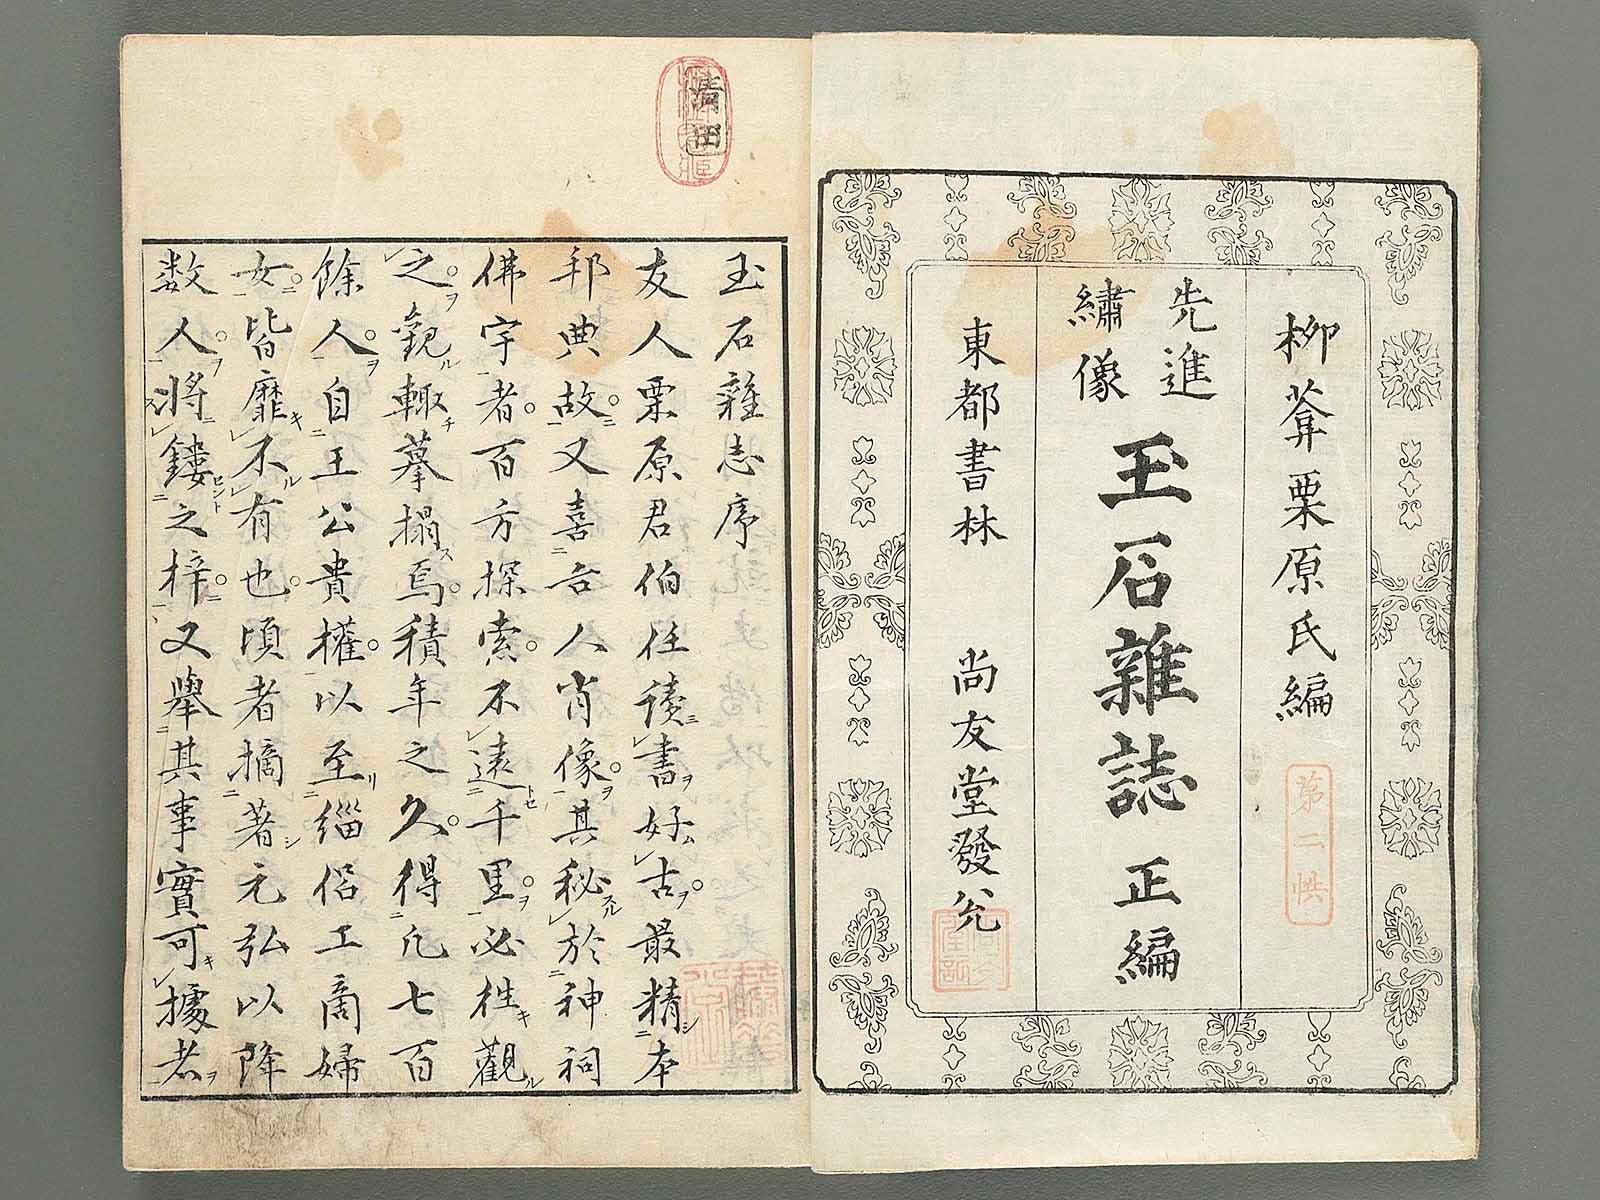 柳菴栗原氏編
先進
繡像
玉石雜誌 正編
東都書林 尚友堂發兌
第二帙
清田
玉石雜志序
友人栗原君伯任讀書好古最精本
邦典故又喜古人肖像其秘於神祠
佛宇者百方探索不遠千里必往觀
之觀輙摹搨焉積年之久得凡七百
餘人自王公貴權以至緇侶工商婦
女皆靡不有也頃者摘著元弘以降
数人將鏤之梓又舉其事實可據者